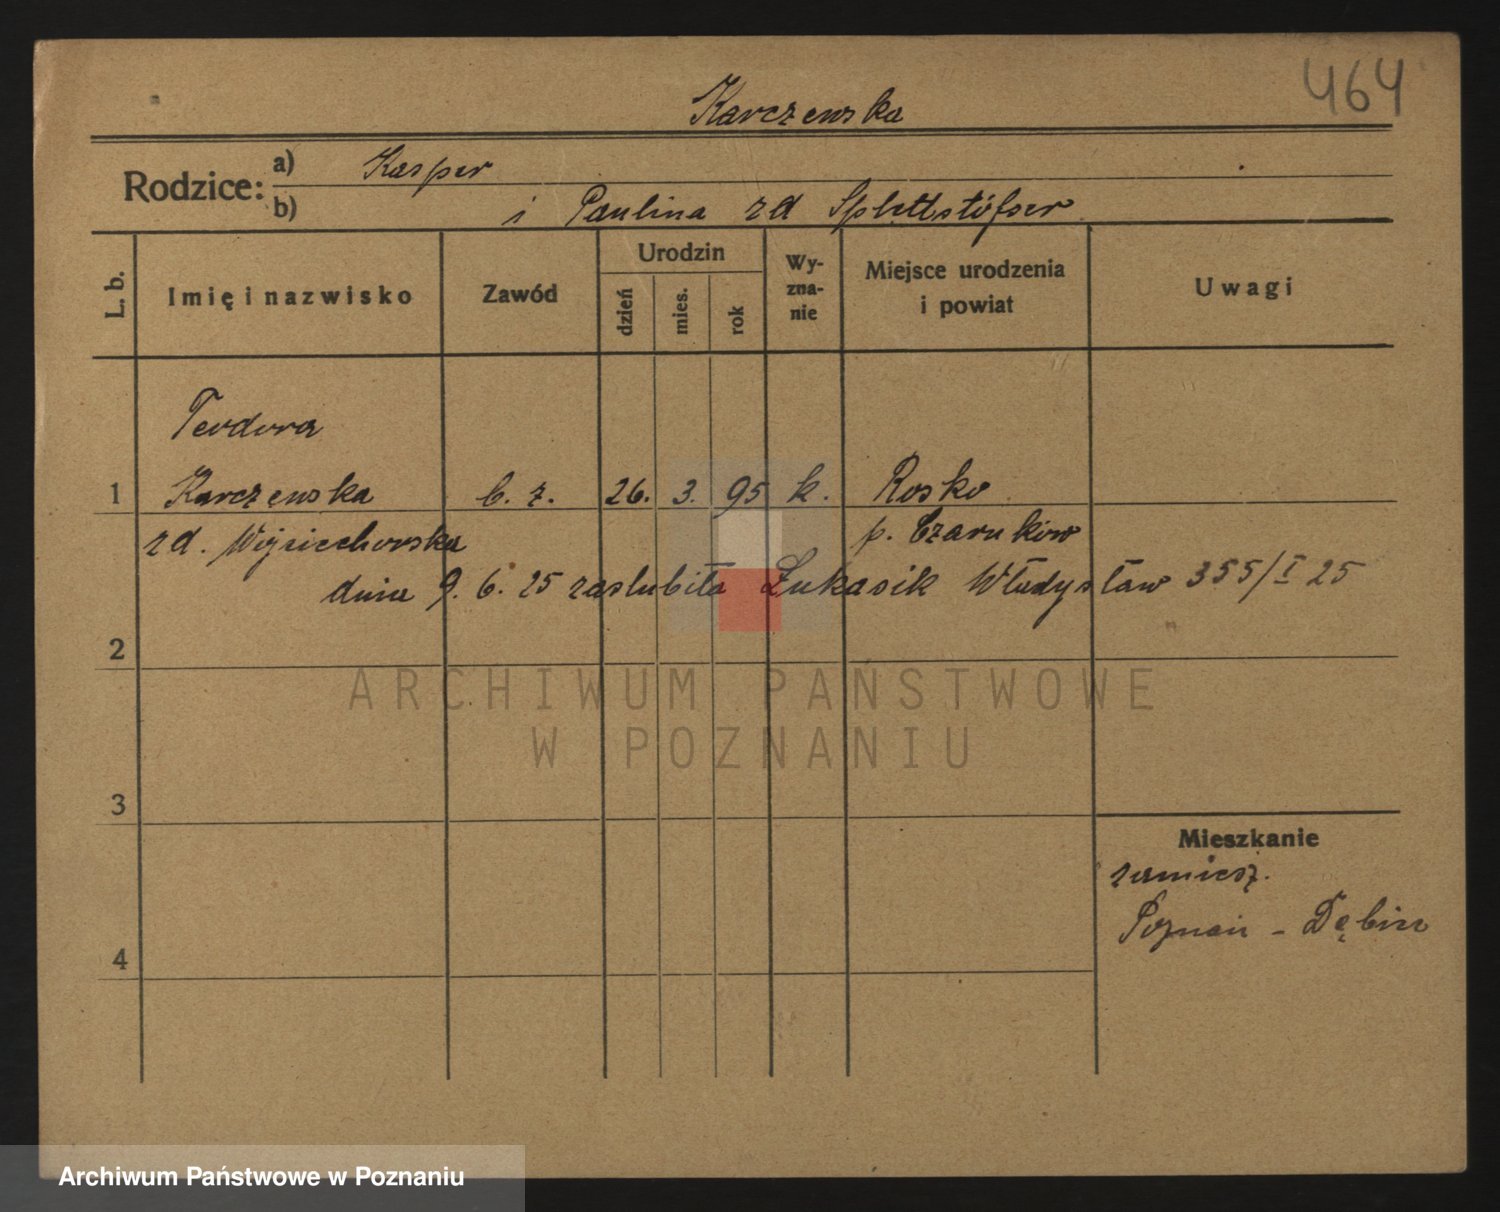 464
Karczewska
Rodzice: a) Kasper
b) i Paulina zd Splettstößer
L. b.
Imię i nazwisko
Zawód
Urodzin
dzień
mies.
rok
Wy-
zna-
nie
Miejsce urodzenia
i powiat
Uwagi
Teodora
1 Karczewska b. z. 26. 3. 95 k. Rosko
zd. Wojciechowska p. Czarnków
dnia 9. 6. 25 zaslubiła Łukasik Władysław 355/I 25
2
ARCHIWUM PAŃSTWOWE
W POZNANIU
3
Mieszkanie
zamiesz.
Poznań - Dębiec
4
Archiwum Państwowe w Poznaniu